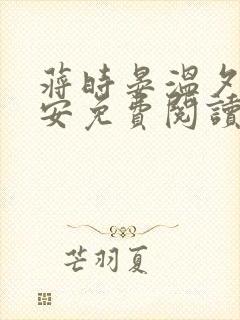 蔣時晏溫夕
安免費閱讀
芒羽夏